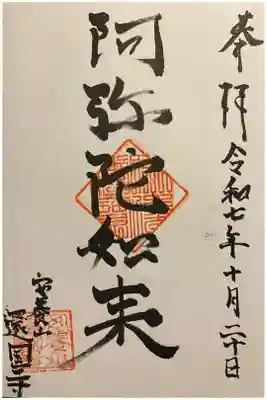 奉拝 令和七年十月二十日
阿弥陀如来
還国寺